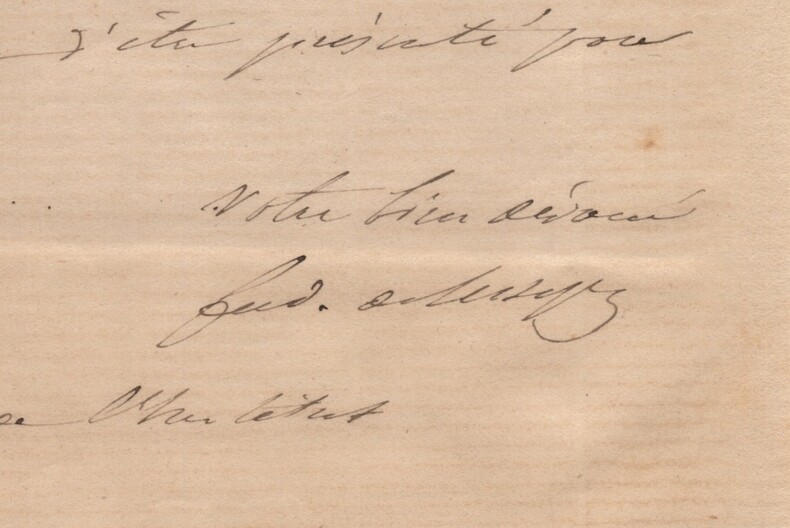 d'être présenté pour
Votre bien dévoué
ferd. de Lesseps
de l'Institut